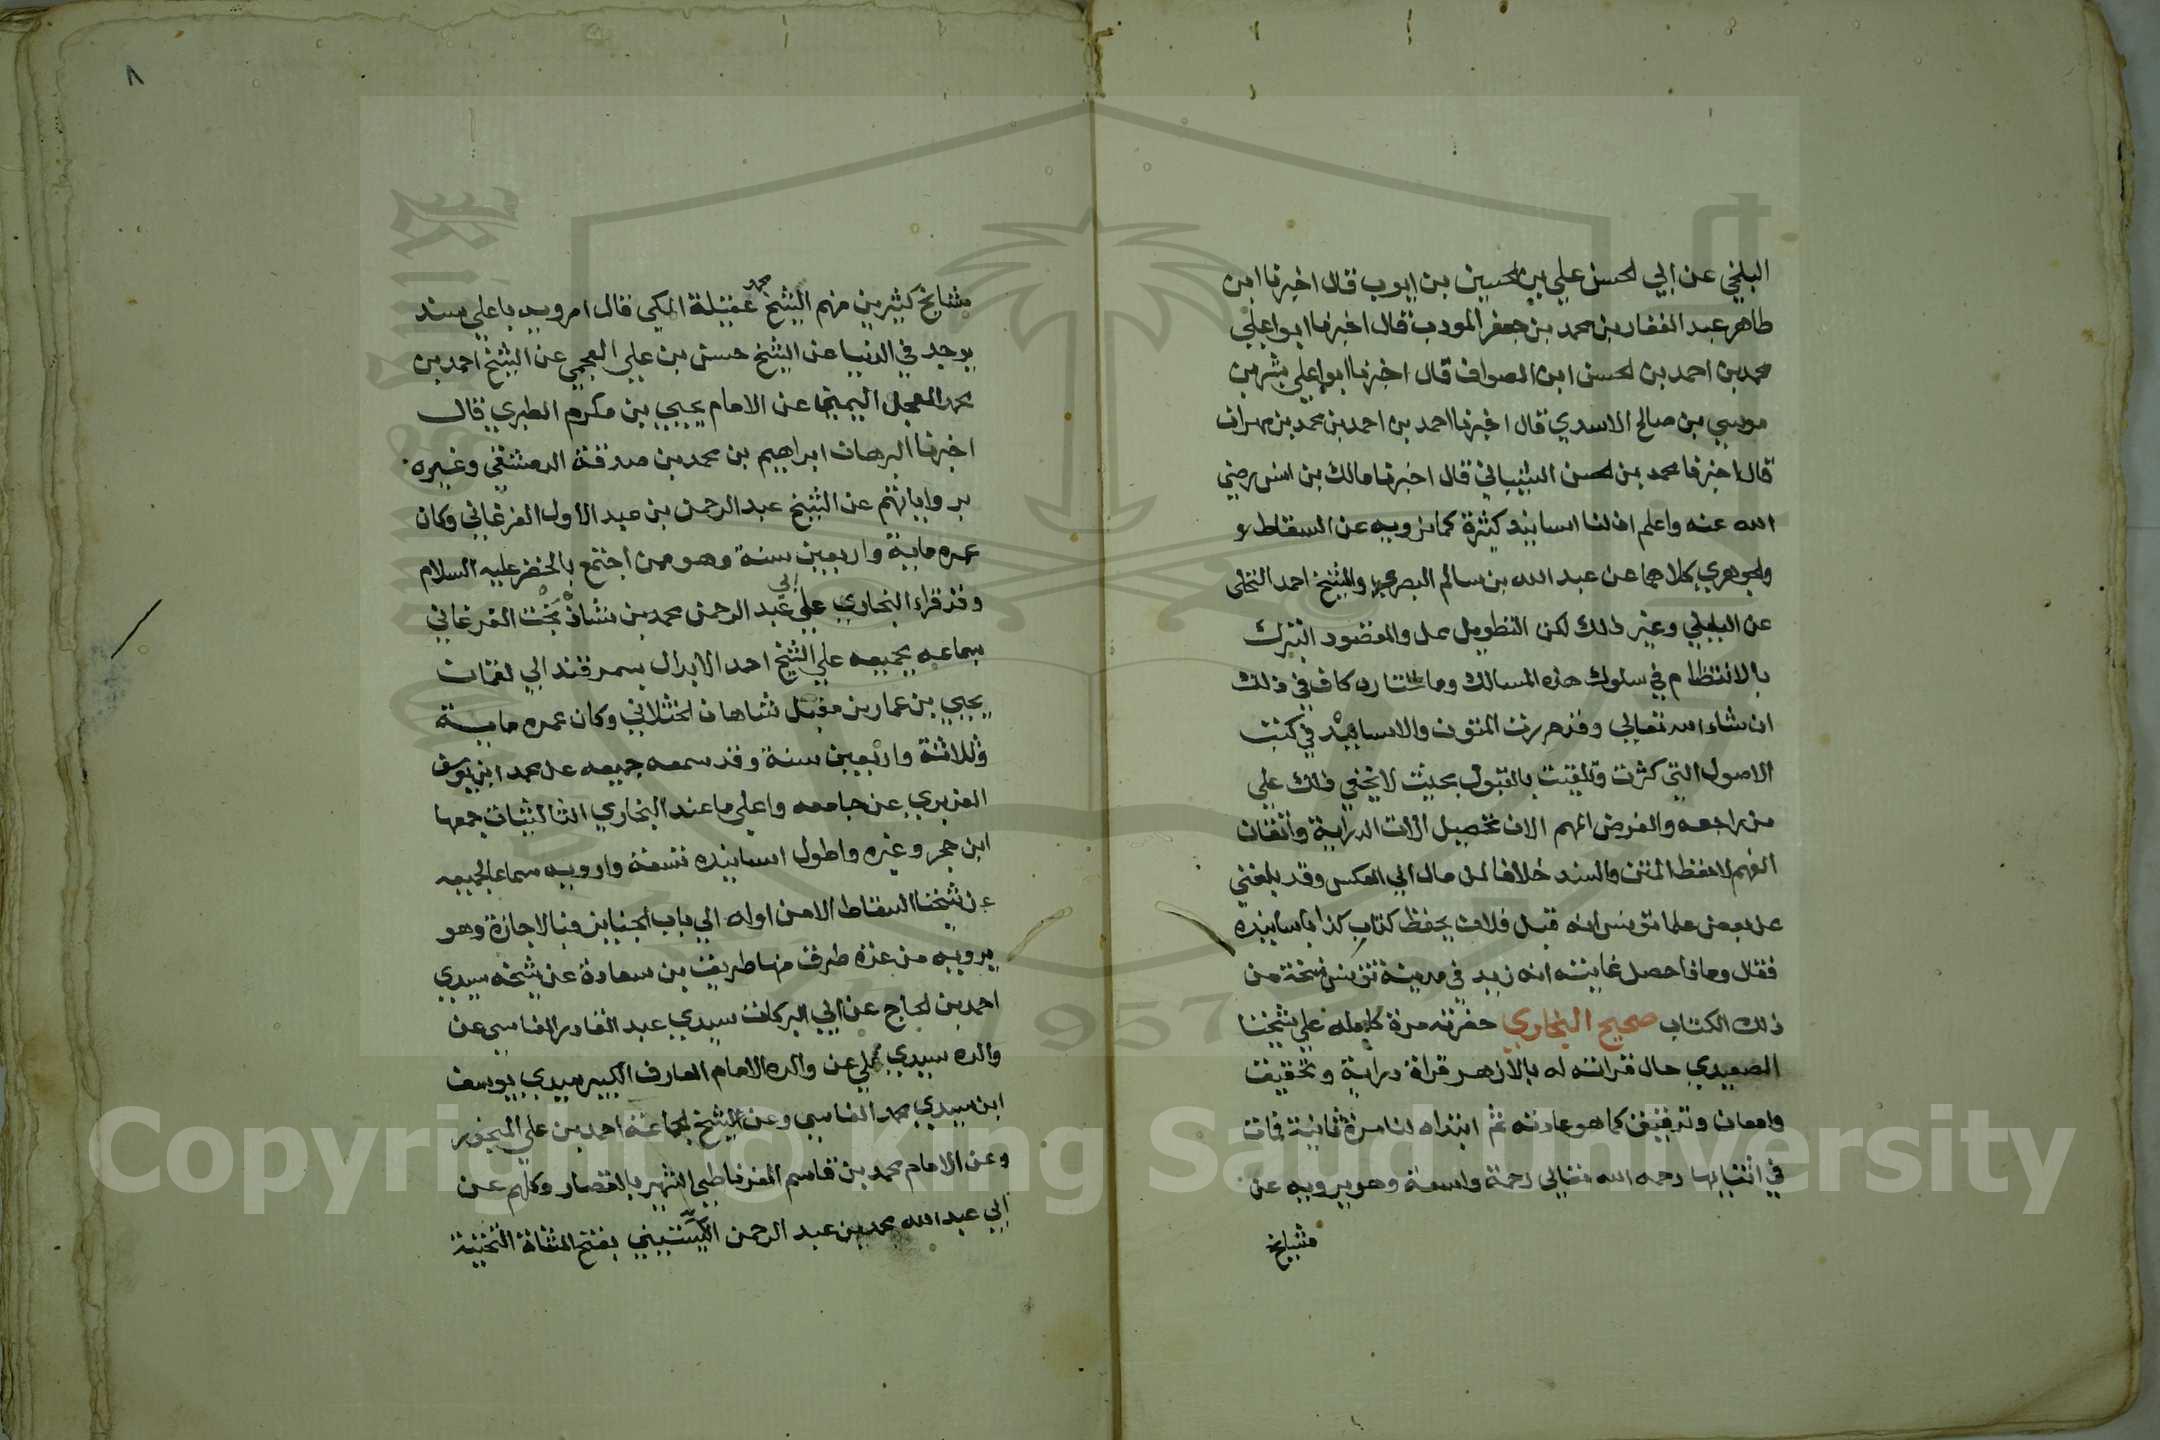 البلخي عن ابي الحسن علي بن الحسين بن ايوب قال اخبرنا ابن
طاهر عبد الغفار بن محمد بن جعفر المودب قال اخبرنا ابوا علي
محمد بن احمد بن الحسن ابن الصواف قال اخبرنا ابوا علي بشر بن
موسي بن صالح الاسدي قال اخبرنا احمد بن احمد بن محمد بن مهران
قال اخبرنا محمد بن الحسن الشيباني قال اخبرنا مالك بن انس رضي
الله عنه واعلم ان لنا اسانيد كثيرة كما نرويه عن السقاط و
والجوهري كلاهما عن عبد الله بن سالم البصري والشيخ احمد النخلي
عن البابلي وغير ذلك لكن التطويل يمل والمقصود التبرك
بالانتظام في سلوك هذه المسالك وما اختاره كاف في ذلك
ان شاء الله تعالي وقد حررت المتون والاسانيد في كتب
الاصول التي كثرت وتلقيت بالقبول بحيث لا يخفي ذلك علي
من راجعه والغرض المهم الان تحصيل الات الدراية واتقان
الفهم لا حفظ المتن والسند خلافا لمن مال الي العكس وقد بلغني
عن بعض علما تونس انه قيل فلان يحفظ كتاب كذا باسانيده
فقال وماذا حصل غايته انه زيد في مدينة تونس نسخة من
ذلك الكتاب صحيح البخاري حضرته مرة كاملة علي شيخنا
الصعيدي حال قراته له بالازهر قراة دراية وتحقيق
وامعان وتدقيق كما هو عادته ثم ابتداه لنا مرة ثانية فمات
في اثنايها رحمه الله تعالي رحمة واسعة وهو يرويه عن
مشايخ
٨
مشايخ كثيرين منهم الشيخ محمد عقيلة المكي قال ارويه باعلي سند
يوجد في الدنيا عن الشيخ حسن بن علي العجمي عن الشيخ احمد بن
محمد العجل اليمني عن الامام يحيي بن مكرم الطبري قال
اخبرنا البرهان ابراهيم بن محمد بن صدقة الدمشقي وغيره
برواياتهم عن الشيخ عبد الرحمن بن عبد الاول الفرغاني وكان
عمره ماية واربعين سنة وهو ممن اجتمع بالخضر عليه السلام
وقد قراء البخاري علي ابي عبد الرحمن محمد بن شاذ بخت الفرغاني
بسماعه بجميعه علي الشيخ احد الابدال بسمرقند ابي لقمان
يحيي بن عمار بن مقبل شاهان الختلاني وكان عمره ماية
وثلاثة واربعين سنة وقد سمعه جميعه عن محمد ابن يوسف
الفربري عن جامعه واعلي ما عند البخاري الثلاثيات جمعها
ابن حجر وغيره واطول اسانيده تسعة وارويه سماعا لجميعه
عن شيخنا السقاط الا من اوله الي باب الجنايز فبالاجازة وهو
يرويه من عدة طرق منها طريق بن سعادة عن شيخه سيدي
احمد بن الحاج عن ابي البركات سيدي عبد القادر الفاسي عن
والده سيدي علي عن والده الامام العارف الكبير سيدي يوسف
ابن سيدي محمد الفاسي وعن الشيخ الجماعة احمد بن علي المنجور
وعن الامام محمد بن قاسم الغرناطي الشهير بالقصار وكلهم عن
ابي عبد الله محمد بن عبد الرحمن اليستيني بفتح المثناة التحتية
Copyright © King Saud University
1957